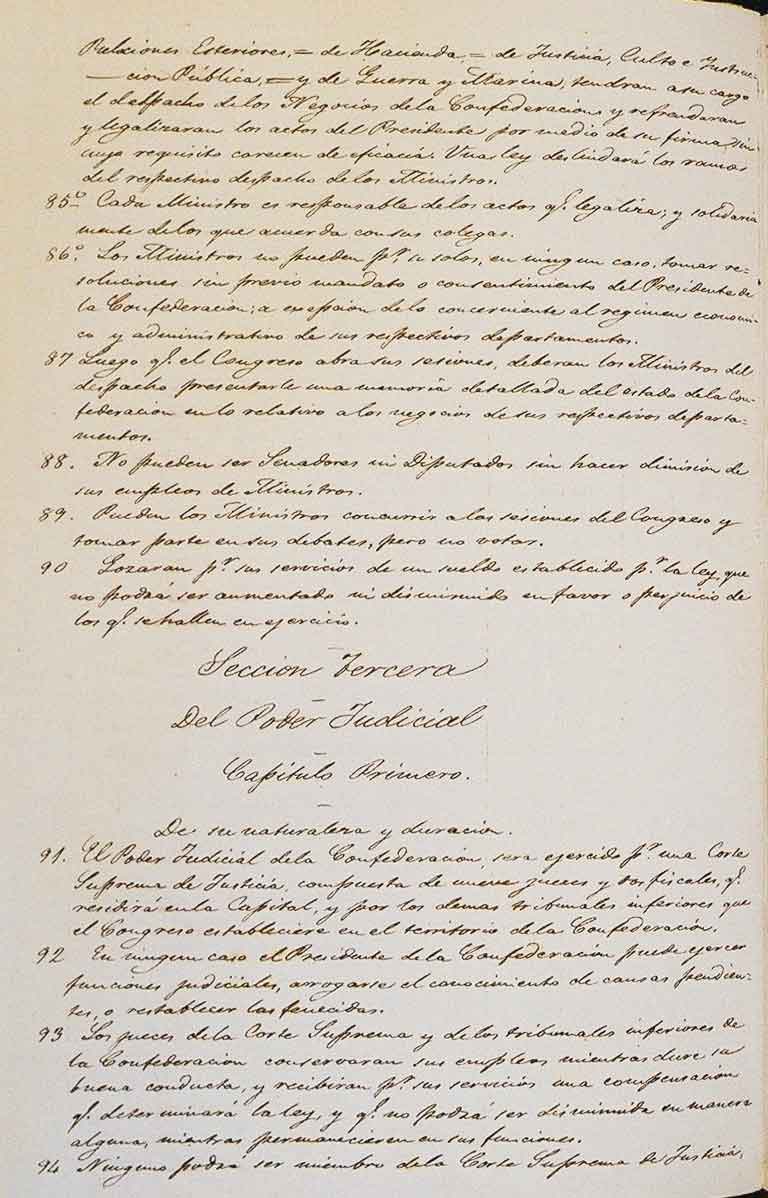 Relaciones Esteriores, = de Hacienda, = de Justicia, Culto e Instruc-
—cion Pública, = y de Guerra y Marina, tendran a su cargo
el despacho de los Negocios de la Confederacion y refrendaran
y legalizaran los actos del Presidente por medio de su firma, sin
cuyo requisito carecen de eficacia. Una ley deslindará los ramos
del respectivo despacho de los Ministros.
85º Cada Ministro es responsable de los actos q.e legaliza; y solidaria
mente de los que acuerda con sus colegas.
86º Los Ministros no pueden p.r si solos, en ningun caso, tomar re=
soluciones sin previo mandato o consentimiento del Presidente de
la Confederacion; a exepcion de lo concerniente al regimen economi-
co y administrativo de sus respectivos departamentos.
87 Luego q.e el Congreso abra sus sesiones, deberan los Ministros del
despacho presentarle una memoria detallada del estado de la Con-
federacion en lo relativo a los negocios de sus respectivos departa=
mentos.
88. No pueden ser Senadores ni Diputados sin hacer dimision de
sus empleos de Ministros.
89. Pueden los Ministros concurrir a las sesiones del Congreso y
tomar parte en sus debates, pero no votar.
90 Gozaran p.r sus servicios de un sueldo establecido p.r la ley, que
no podrá ser aumentado ni disminuido en favor o perjuicio de
los q.e se hallen en ejercicio.
Seccion Tercera
Del Poder Judicial
Capitulo Primero.
De su naturaleza y duracion.
91. El Poder Judicial de la Confederacion, sera ejercido p.r una Corte
Suprema de Justicia, compuesta de nueve jueces y dos fiscales, q.e
residirá en la Capital, y por los demas tribunales inferiores que
el Congreso estableciere en el territorio de la Confederacion.
92 En ningun caso el Presidente de la Confederacion puede ejercer
funciones judiciales, arrogarse el conocimiento de causas pendien-
tes, o restablecer las fenecidas.
93 Los jueces de la Corte Suprema y de los tribunales inferiores de
la Confederacion conservaran sus empleos mientras dure su
buena conducta, y recibiran p.r sus servicios una compensacion
q.e determinará la ley, y q.e no podrá ser disminuida en manera
alguna, mientras permanecieren en sus funciones.
94 Ninguno podra ser miembro de la Corte Suprema de Justicia,